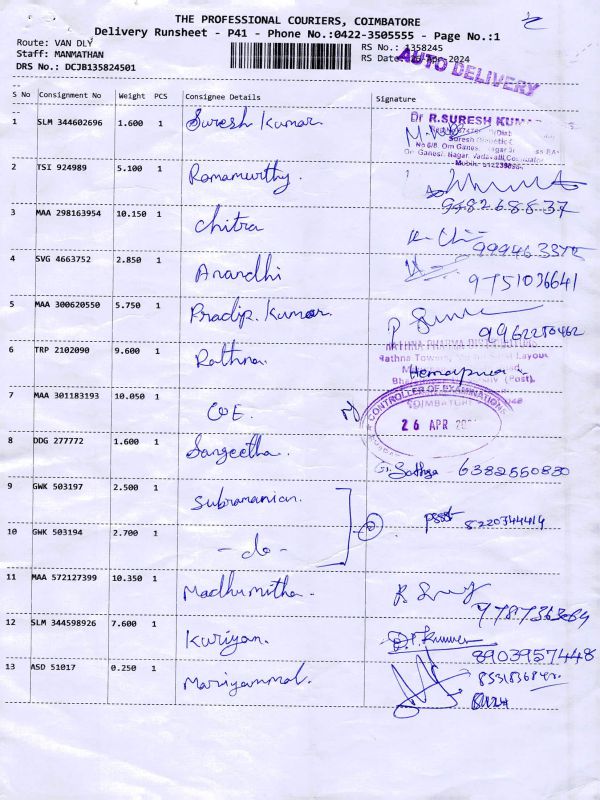 THE PROFESSIONAL COURIERS, COIMBATORE
Delivery Runsheet - P41 - Phone No.:0422-3505555 - Page No.:1
Route: VAN DLY
RS No.: 1358245
Staff: MANMATHAN
RS Date: 26-Apr-2024
DRS No.: DCJB135824501
AUTO DELIVERY
S No Consignment No Weight PCS Consignee Details Signature
1 SLM 344602696 1.600 1 Suresh Kumar
Dr R.SURESH KUMAR
2 TSI 924989 5.100 1 Ramamurthy.
3 MAA 298163954 10.150 1 Chitra
4 SVG 4663752 2.850 1 Anandhi 9751036641
5 MAA 300620550 5.750 1 Pradip. Kumar
6 TRP 2102090 9.600 1 Rathna.
7 MAA 301183193 10.050 1 COE.
CONTROLLER OF EXAMINATIONS
COIMBATORE
26 APR
8 DDG 277772 1.600 1 Sangeetha. Sathya 6382550830
9 GWK 503197 2.500 1 Subramanian. 8220344414
10 GWK 503194 2.700 1 - do -
11 MAA 572127399 10.350 1 Madhumitha.
12 SLM 344598926 7.600 1 Kuriyan.
8903957448
13 ASD 51017 0.250 1 Mariyammal.